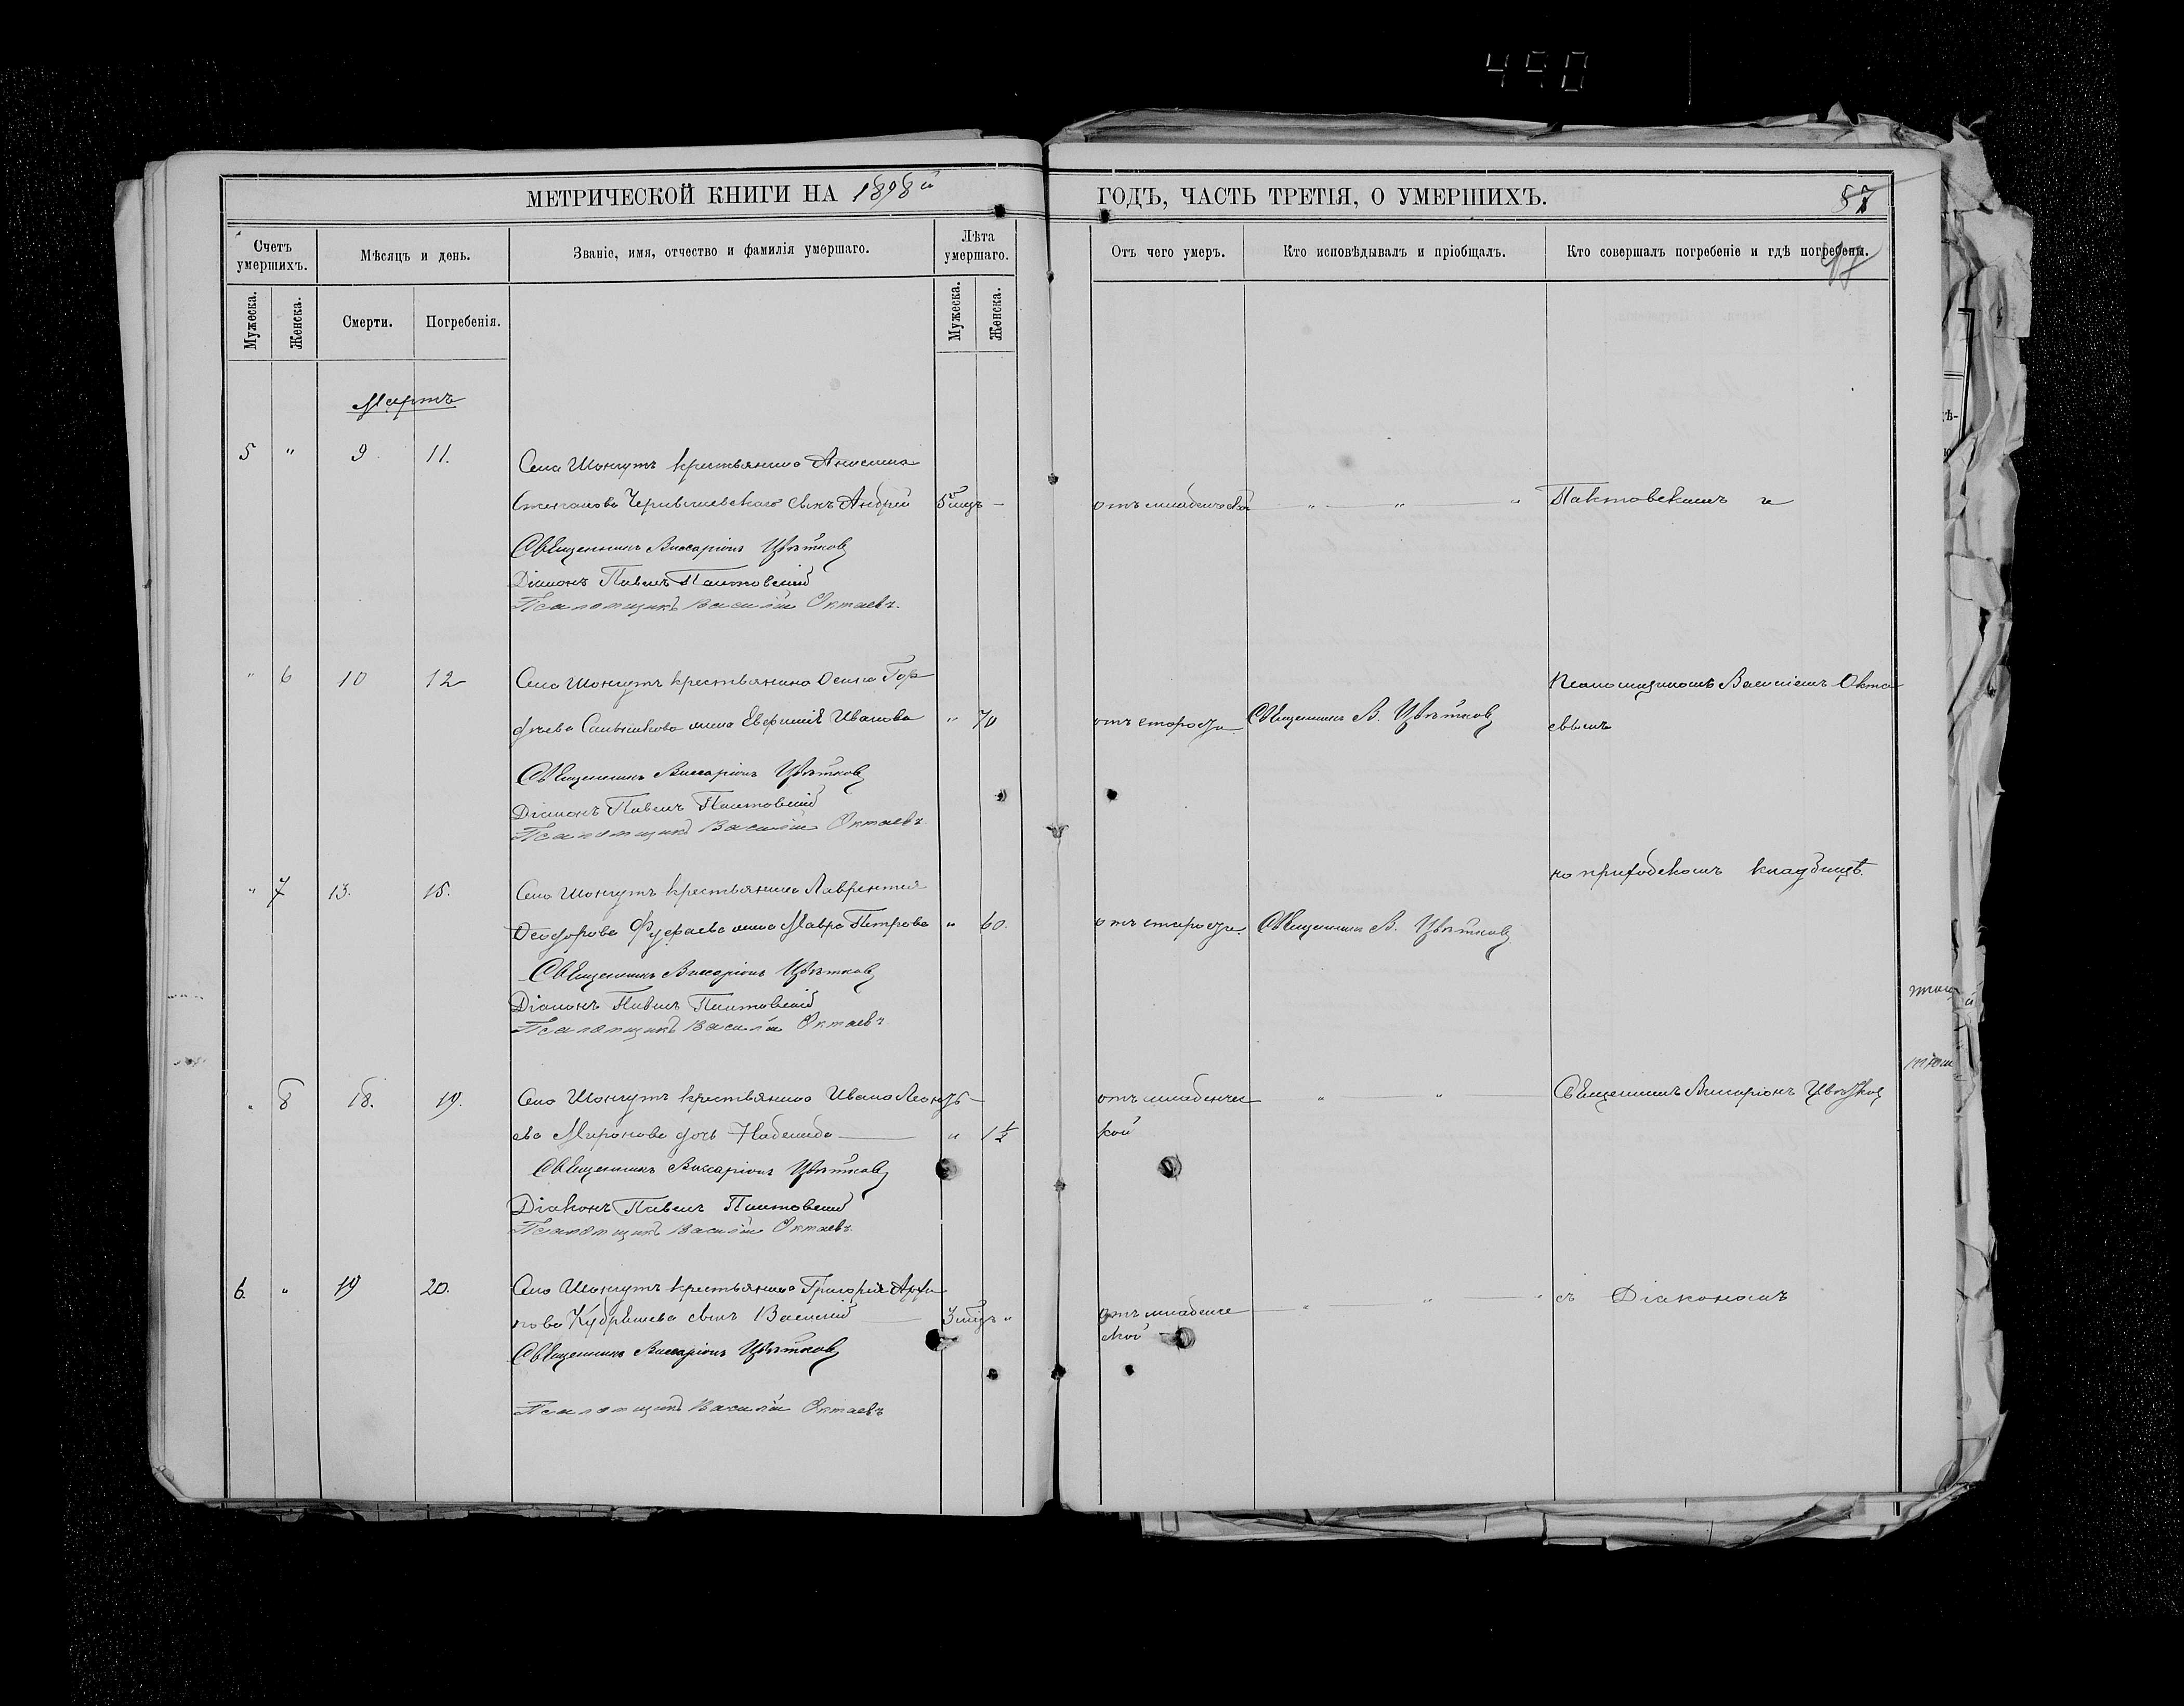 490
МЕТРИЧЕСКОЙ КНИГИ НА 1898й ГОДЪ, ЧАСТЬ ТРЕТІЯ, О УМЕРШИХЪ.
Счетъ умершихъ.
Мѣсяцъ и день.
Званіе, имя, отчество и фамилія умершаго.
Лѣта умершаго.
Отъ чего умеръ.
Кто исповѣдывалъ и пріобщалъ.
Кто совершалъ погребеніе и гдѣ погребены.
Мужеска.
Женска.
Смерти.
Погребенія.
Мужеска.
Женска.
Мартъ
5 " 9. 11. Села Шонгутъ крестьянина Анисима
Степанова Чернышевскаго сынъ Андрей 5 мцъ — отъ младенческой " " " Пактовскимъ и
Священникъ Виссаріонъ Цвѣтковъ
Діаконъ Павелъ Пактовскій
Псаломщикъ Василій Октаевъ.
" 6 10 12 Села Шонгутъ крестьянина Осипа Гор- Псаломщикомъ Василіемъ Окта-
дѣева жена Евфимія Иванова " 70 отъ старости Священникъ В. Цвѣтковъ евымъ
Священникъ Виссаріонъ Цвѣтковъ
Діаконъ Павелъ Пактовскій
Псаломщикъ Василій Октаевъ.
на приходскомъ кладбищѣ.
" 7 13. 15. Села Шонгутъ крестьянина Лаврентія
Ѳеодорова жена Мавра Петрова " 60. отъ старости. Священникъ В. Цвѣтковъ
Священникъ Виссаріонъ Цвѣтковъ
Діаконъ Павелъ Пактовскій
Псаломщикъ Василій Октаевъ.
" 8 18. 19. Села Шонгутъ крестьянина Ивана — отъ младенчес- " " Священникъ Виссаріонъ Цвѣтковъ
ева Миронова дочь Надежда — " 1½ кой
Священникъ Виссаріонъ Цвѣтковъ
Діаконъ Павелъ Пактовскій
Псаломщикъ Василій Октаевъ.
6. " 19 20. Села Шонгутъ крестьянина Григорія Архи- съ Діакономъ
пова Кудряшева сынъ Василій — 3 мцъ " отъ младенче- " " "
ской
Священникъ Виссаріонъ Цвѣтковъ
Псаломщикъ Василій Октаевъ